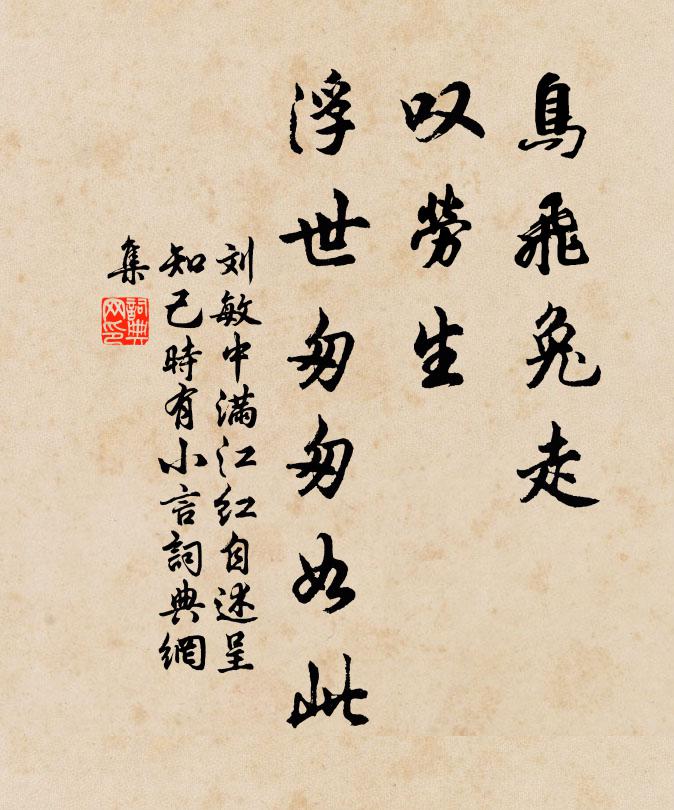 烏飛兔走
叹勞生
浮世匆匆如此
刘敏中滿江红自述呈
知己時有小言詞典網
集
詞典
网印